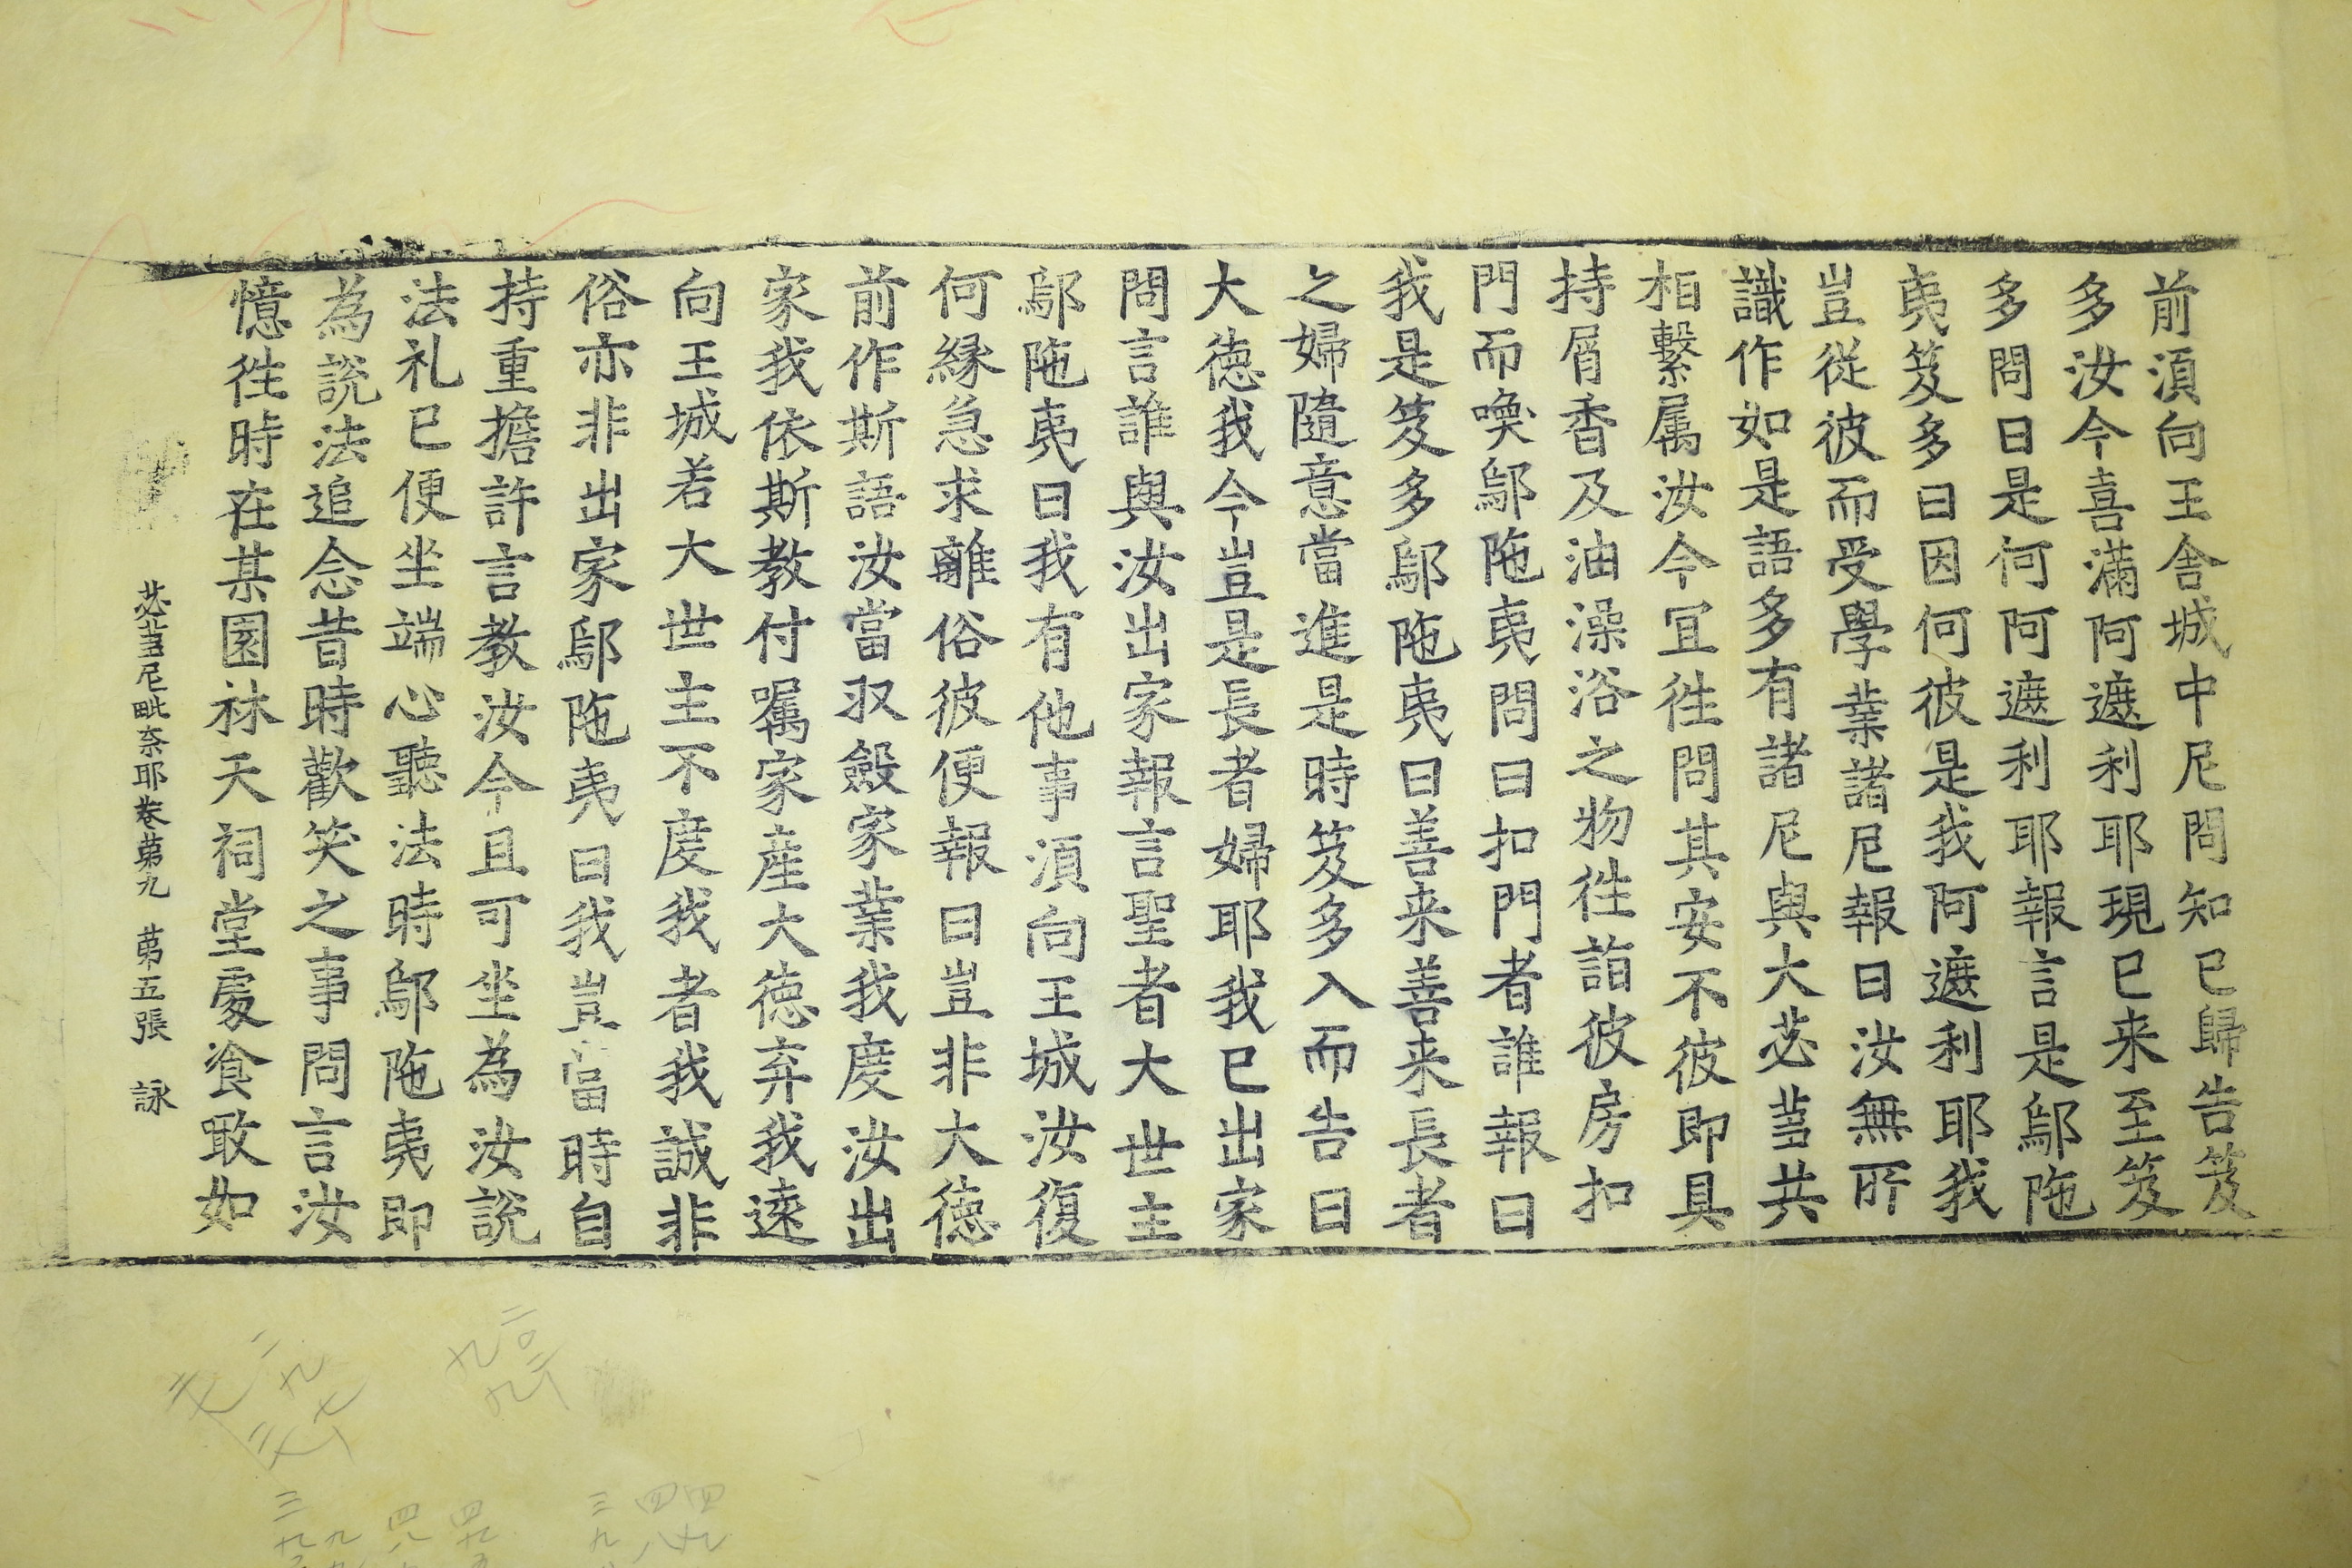 前湏向王舍城中尼問知已歸告笈
多汝今喜滿阿遮利耶現已来至笈
多問曰是何阿遮利耶報言是鄔陁
夷笈多曰因何彼是我阿遮利耶我
豈從彼而受學業諸尼報曰汝無所
識作如是語多有諸尼與大苾蒭共
相繫属汝今冝徃問其安不彼即具
持屑香及油澡浴之物徃詣彼房扣
門而喚鄔陁夷問曰扣門者誰報曰
我是笈多鄔陁夷曰善来善来長者
之婦隨意當進是時笈多入而告曰
大德我今豈是長者婦耶我已出家
問言誰與汝出家報言聖者大世主
鄔陁夷曰我有他事湏向王城汝復
何縁急求離俗彼便報曰豈非大德
前作斯語汝當収斂家業我度汝出
家我依斯教付囑家産大德弃我逺
向王城若大世主不度我者我誠非
俗亦非出家鄔陁夷曰我豈當時自
持重擔許言教汝今且可坐為汝說
法礼已便坐端心聽法時鄔陁夷即
為説法追念昔時歡笑之事問言汝
憶徃時在某園林天祠堂處飡噉如
苾蒭尼毗奈耶卷苐九　苐五張　詠